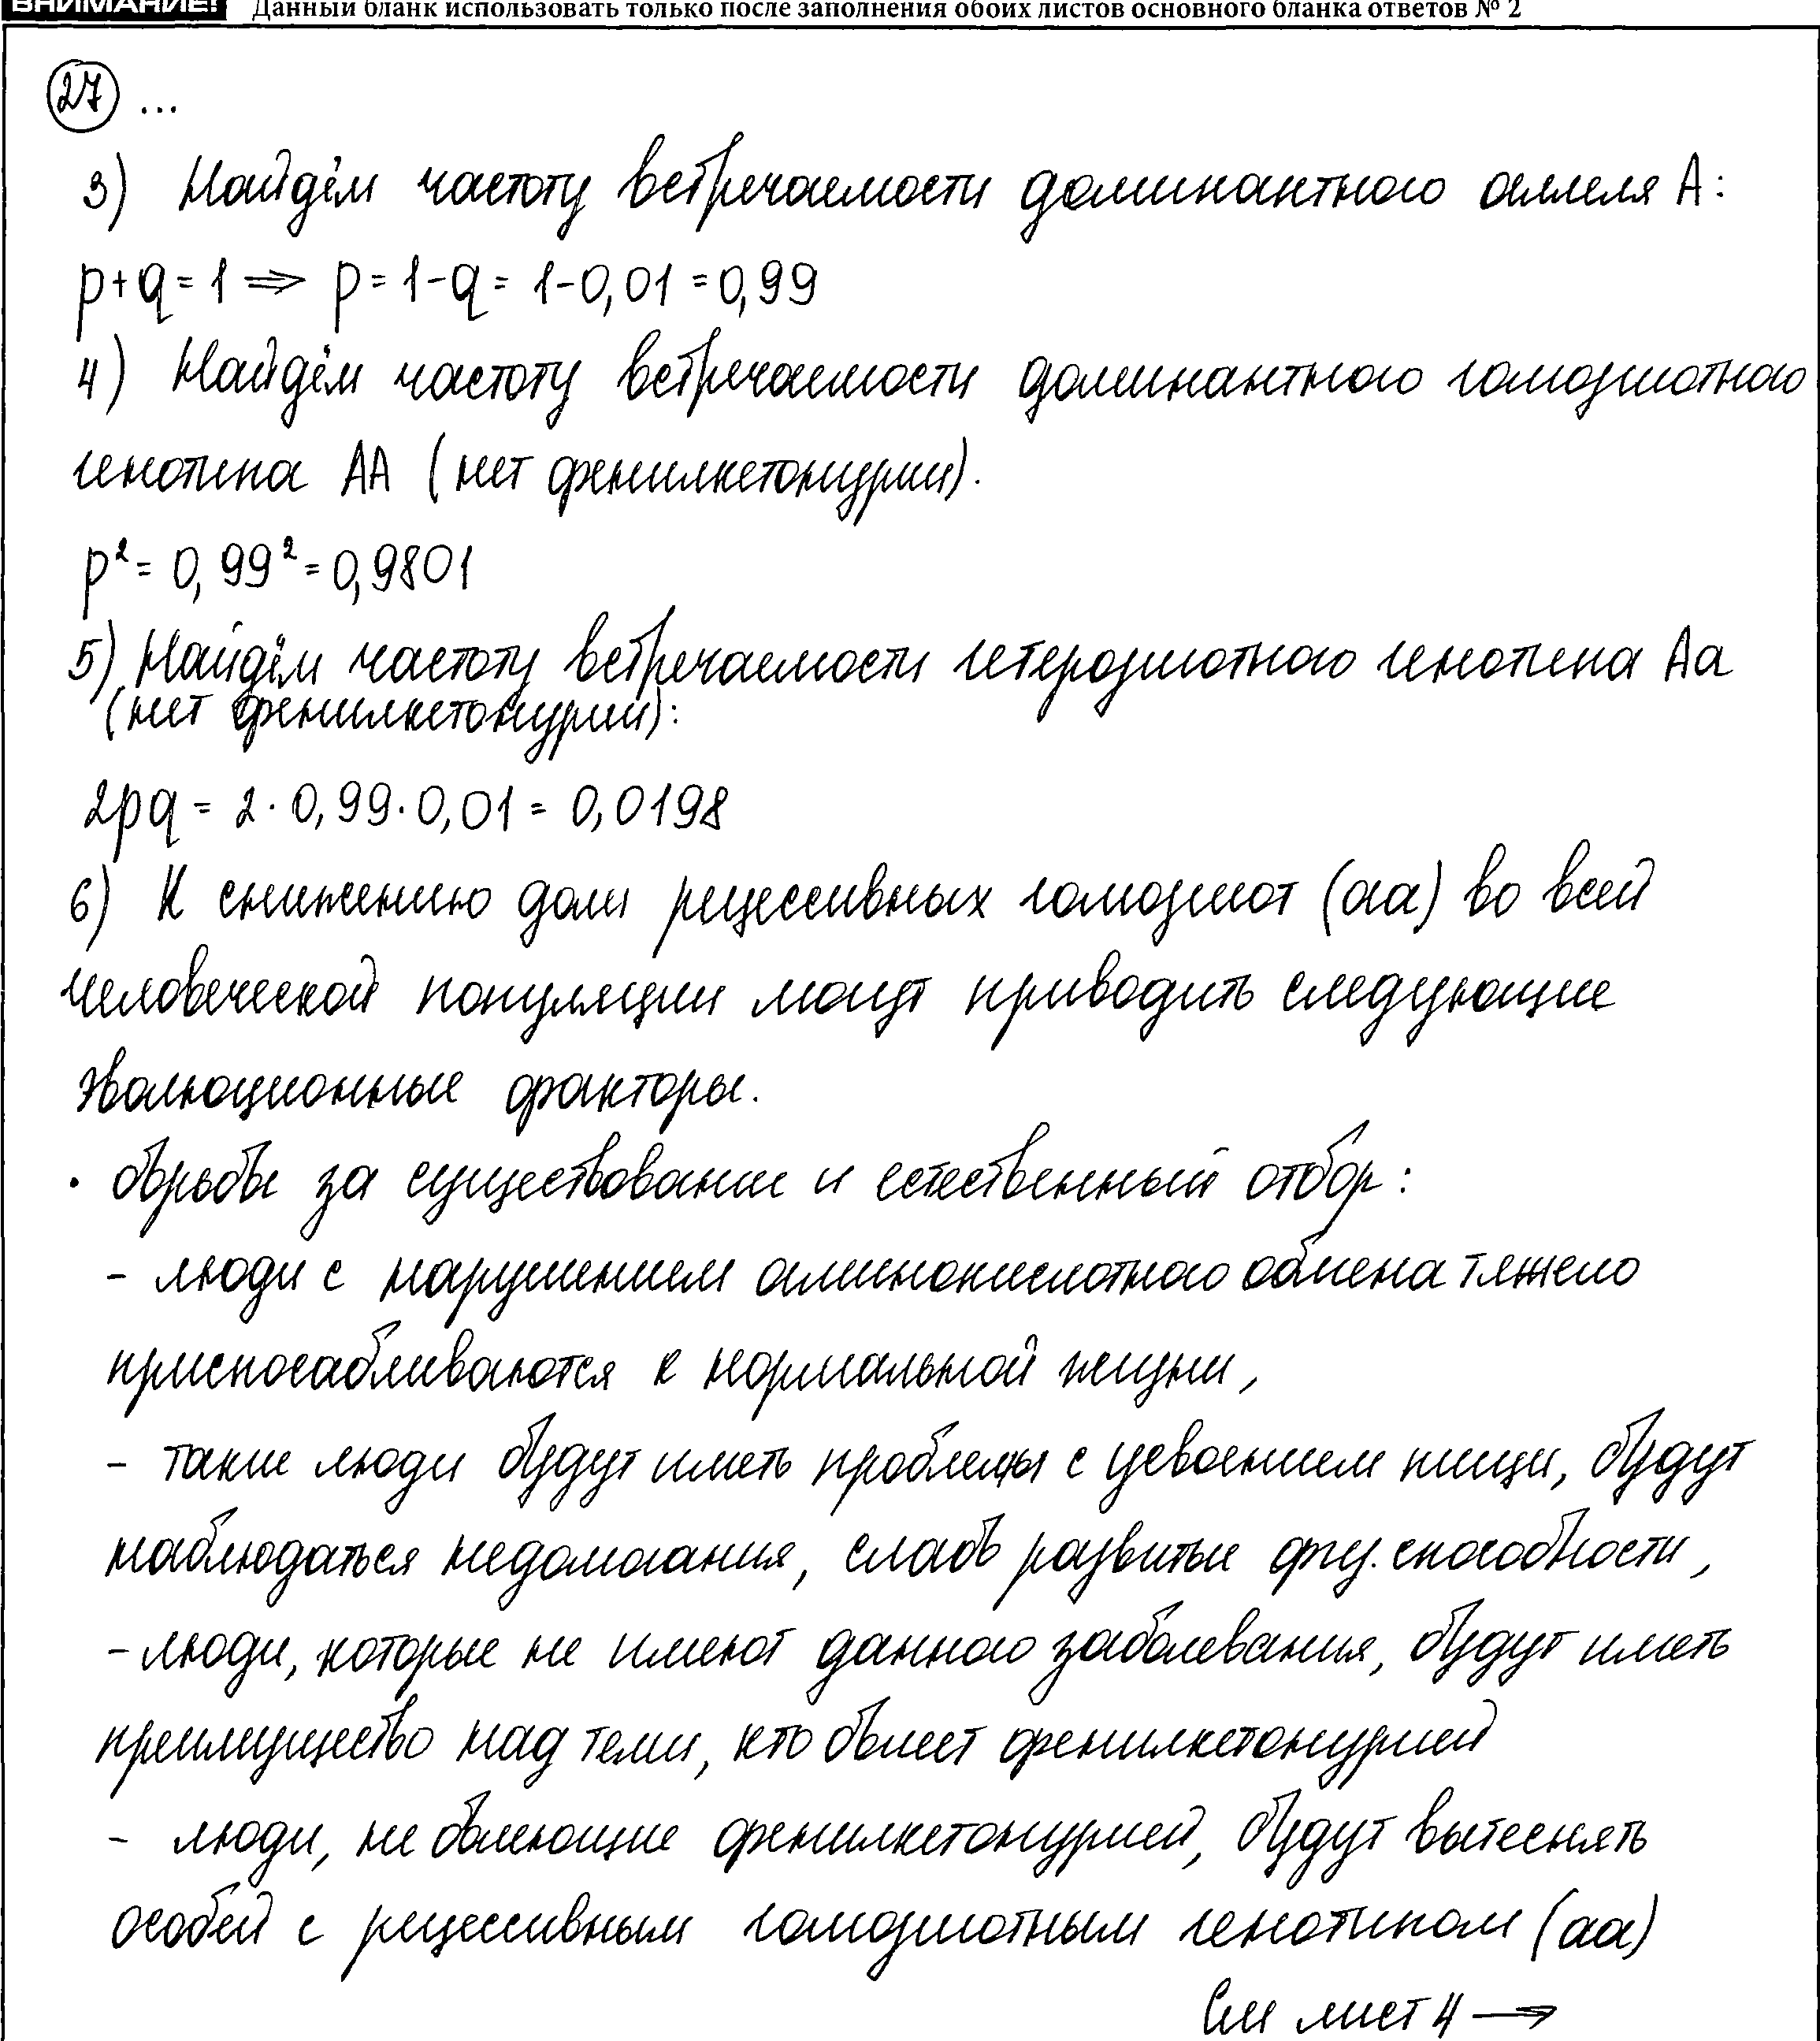 ВНИМАНИЕ! Данный бланк использовать только после заполнения обоих листов основного бланка ответов № 2
27 ...
3) Найдём частоту встречаемости доминантного аллеля А:
p+q=1 ⇒ p=1-q= 1-0,01=0,99
4) Найдём частоту встречаемости доминантного гомозиготного
генотипа АА (нет фенилкетонурии).
p²= 0,99²=0,9801
5) Найдём частоту встречаемости гетерозиготного генотипа Аа
(нет фенилкетонурии):
2pq = 2·0,99·0,01= 0,0198
6) К снижению доли рецессивных гомозигот (аа) во всей
человеческой популяции могут приводить следующие
эволюционные факторы.
· борьбы за существование и естественный отбор:
- люди с нарушением аминокислотного обмена тяжело
приспосабливаются к нормальной жизни,
- такие люди будут иметь проблемы с усвоением пищи, будут
наблюдаться недомогания, слабо развитые физ. способности,
- люди, которые не имеют данного заболевания, будут иметь
преимущество над теми, кто болеет фенилкетонурией
- люди, не болеющие фенилкетонурией, будут вытеснять
особей с рецессивным гомозиготным генотипом (аа)
См лист 4 →